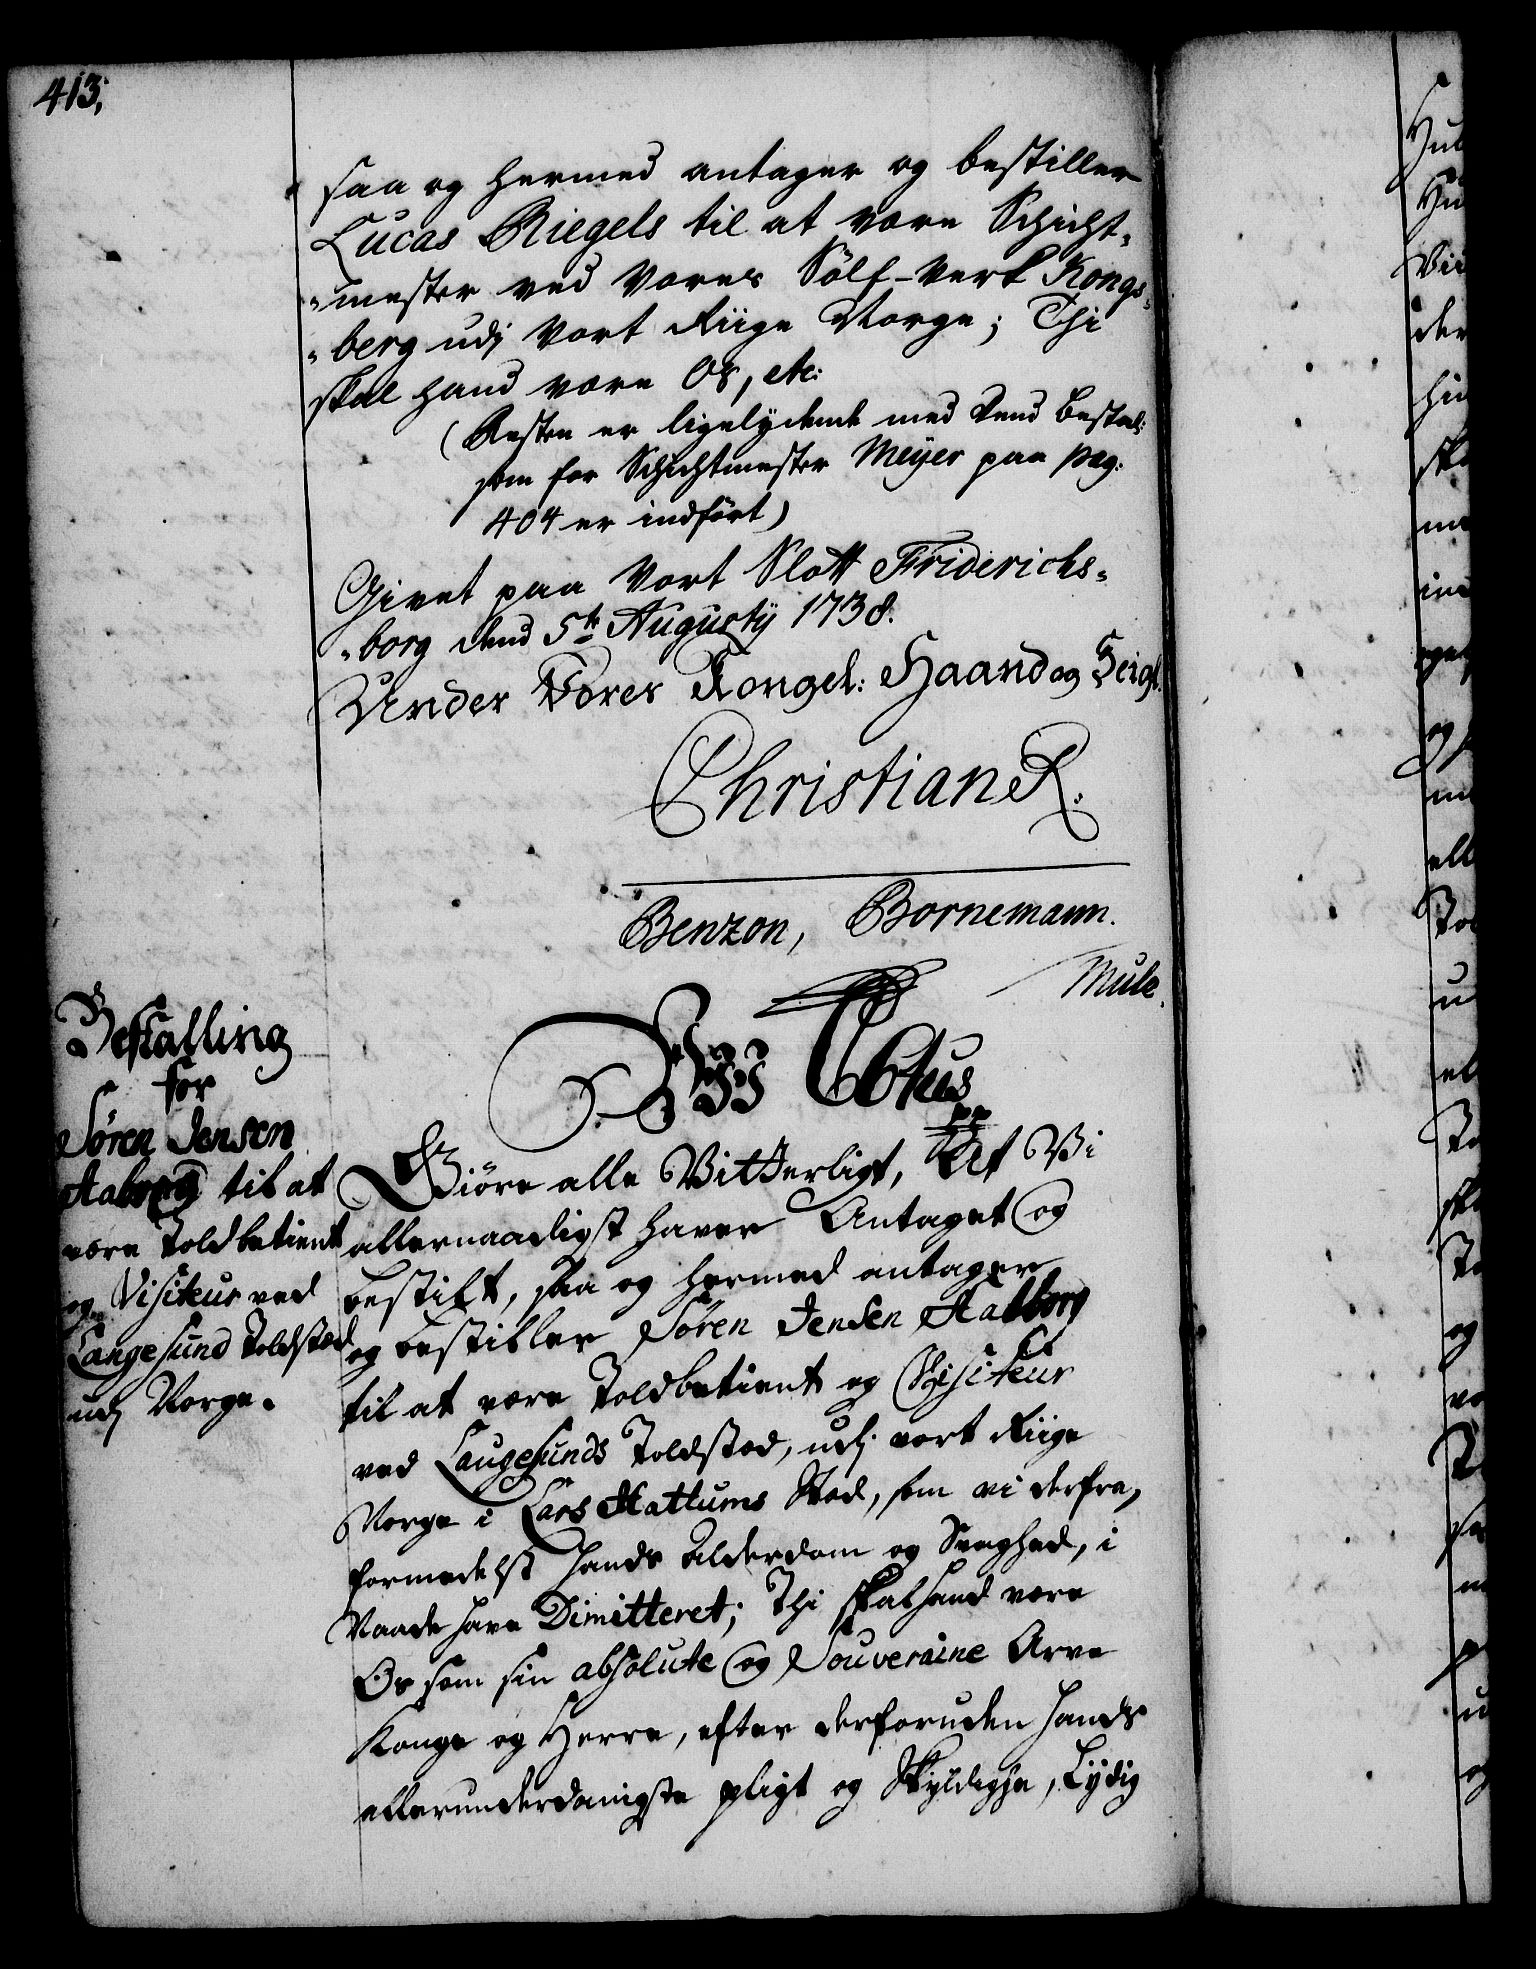 413.
saa og hermed antager og bestiller
Lucas Riegels til at være Schicht-
-mester ved Vores Sölf-Verk Kongs-
-berg udj Vort Riige Norge; Thi
skal hand være Os, etc:
(Resten er ligelydende med dend Bestal:
som for Schichtmester Meÿer paa pag:
404 er indfört)
Givet paa Vort Slott Friderichs-
-borg dend 5te Augustÿ 1738.
Under Vores Kongel: Haand og Zeigl.
Christian R.
Benzon, Bornemann.
Mule.
Bestalling
for
Sören Jensen
Aaborg til at
være Toldbetient
og Visiteur ved
Langesund Toldsted
udj Norge.
Wÿ C6tus
pp
Giöre alle Vitterligt, At Vi
allernaadigst haver Antaget og
bestilt, saa og hermed antager
og bestiller Sören Jensen Aalborg
til at være Toldbetient og Visiteur
ved Langesunds Toldsted, udj vort Riige
Norge i Lars Hattums Sted, som vi derfra,
formedelst hands Alderdom og Svaghed, i
Naade have Dimitteret; Thi skal hand være
Os som sin absolute og Souveraine Arve
Konge og Herre, efter derforuden hands
allerunderdanigste pligt og Skyldighed, Lÿdig